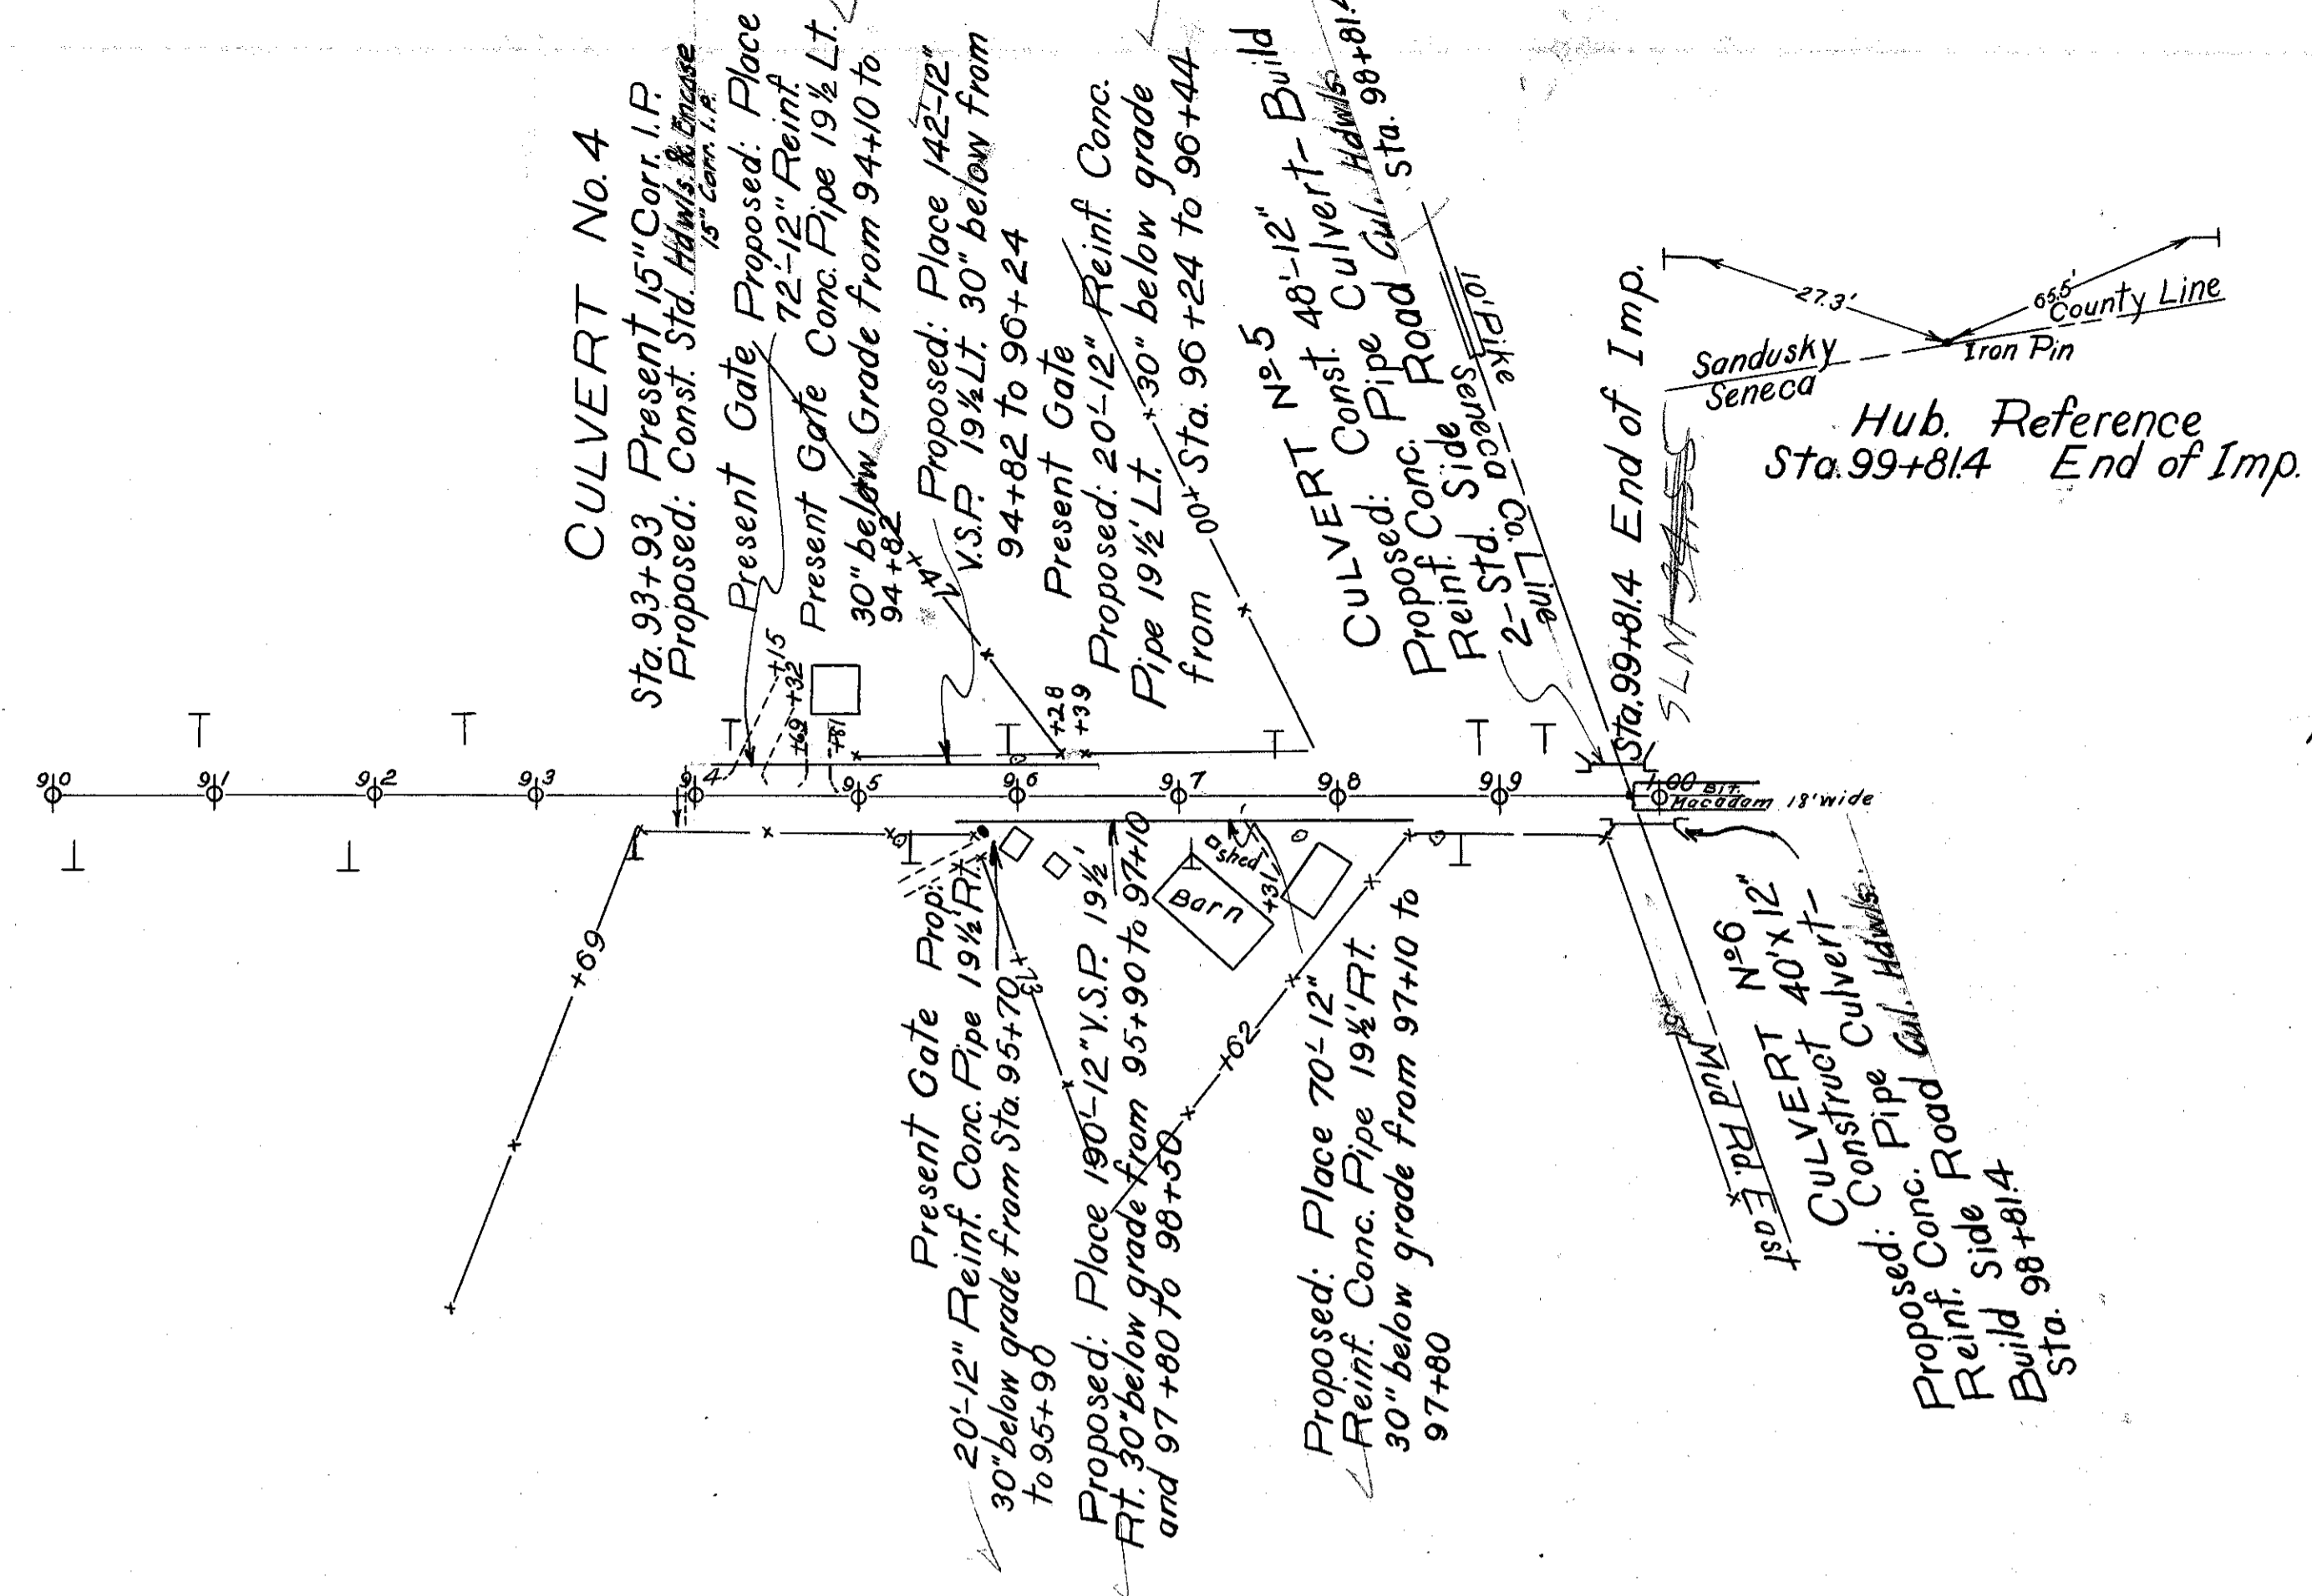 CULVERT No. 4
Sta. 93+93 Present 15" Corr. I.P.
Proposed: Const. Std. Hdwls. & Encase
15" Corr. I.P.
Present Gate Proposed: Place
72'-12" Reinf.
Present Gate Conc. Pipe 19½ Lt.
30" below Grade from 94+10 to
94+82
Proposed: Place 142'-12"
V.S.P. 19½ Lt. 30" below from
94+82 to 96+24
Present Gate
Proposed: 20'-12" Reinf. Conc.
Pipe 19½' Lt. 30" below grade
from Sta. 96+24 to 96+44
+00
CULVERT Nº 5
Proposed: Const. 48'-12"
Reinf. Conc. Pipe Culvert - Build
2-Std. Side Road Cul. Hdwls.
Sta. 98+81.4
Seneca Co. Line
10' Pike
Sta. 99+81.4 End of Imp.
SLM
27.3'
65.5'
County Line
Sandusky
Seneca
Iron Pin
Hub. Reference
Sta. 99+81.4 End of Imp.
+15
+32
+69
+81
+28
+39
90
91
92
93
94
95
96
97
98
99
100
Bit.
Macadam 18' wide
shed
+31
Barn
+69
+13
+62
+51
Mud Rd. East
Present Gate Prop.
20'-12" Reinf. Conc. Pipe 19½' Rt.
30" below grade from Sta. 95+70
to 95+90
Proposed: Place 190'-12" V.S.P. 19½'
Rt. 30" below grade from 95+90 to 97+10
and 97+80 to 98+50
Proposed: Place 70'-12"
Reinf. Conc. Pipe 19½' Rt.
30" below grade from 97+10 to
97+80
CULVERT Nº 6
Proposed: Construct 40'x12"
Reinf. Conc. Pipe Culvert-
Build Side Road Cul. Hdwls.
Sta. 98+81.4